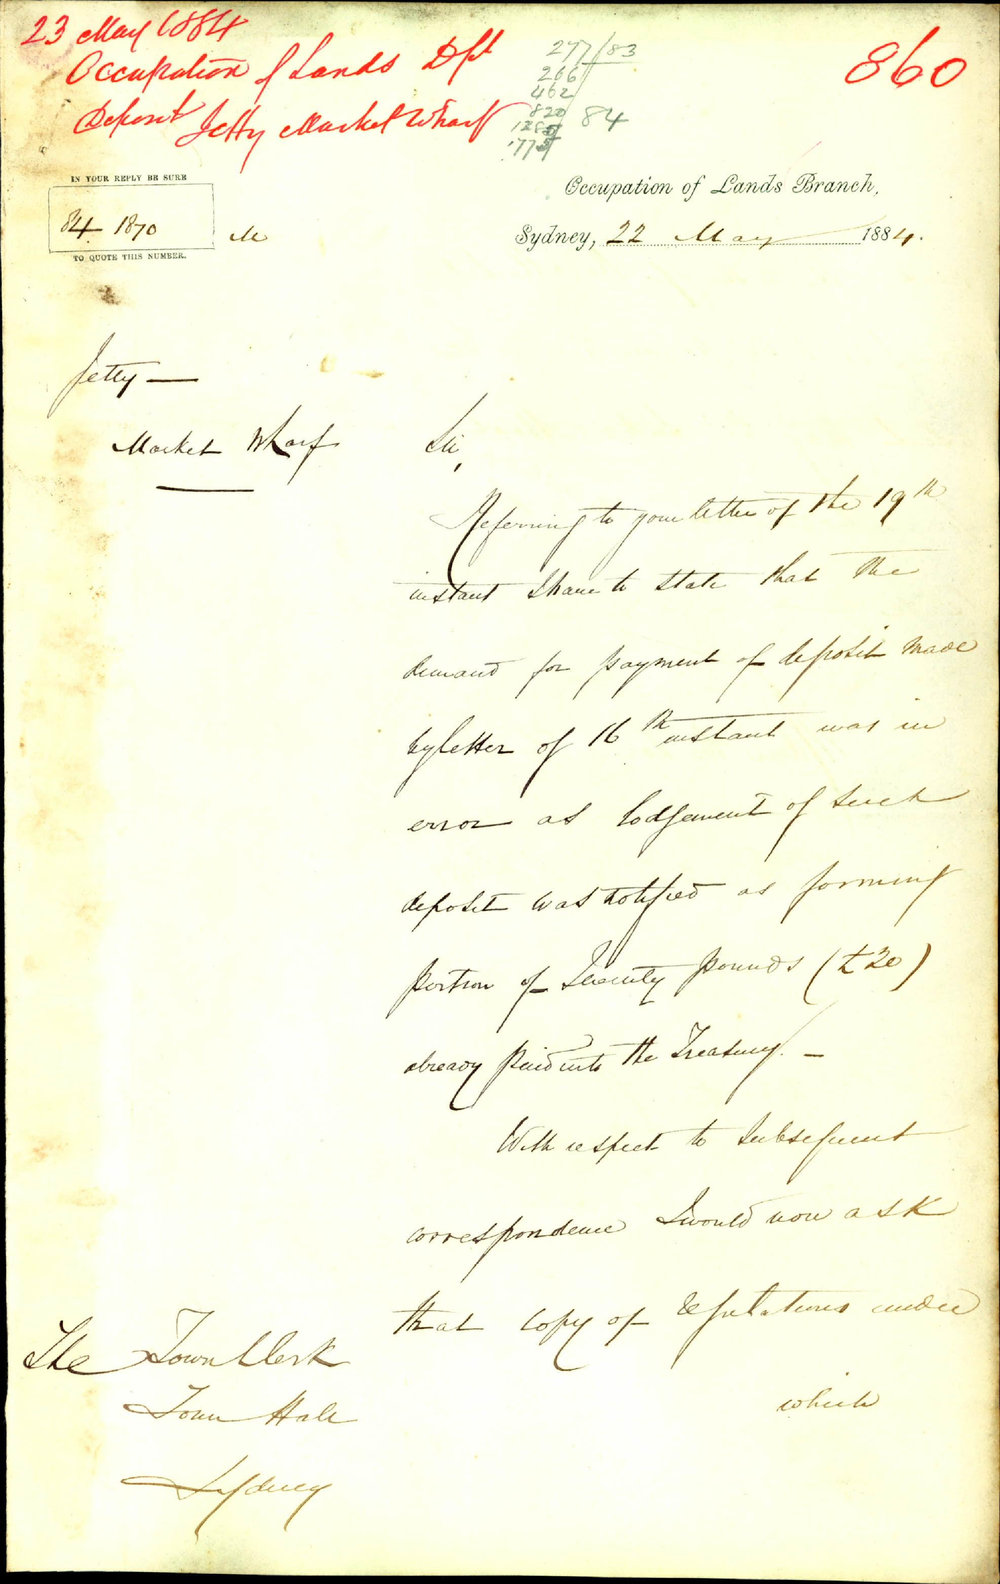 23 May 1884
Occupation of Lands Dpt
Deposit Jetty Market Wharf
277/83
266
462
820 84
1285
1775
860
IN YOUR REPLY BE SURE
84 1870 M
TO QUOTE THIS NUMBER.
Occupation of Lands Branch,
Sydney, 22 May 1884.
Jetty —
Market Wharf
Sir,
Referring to your letter of the 19th
instant I have to state that the
demand for payment of deposit made
by letter of 16th instant was in
error as lodgement of such
deposit was notified as forming
portion of Seventy pounds (£
already paid into the Treasury. —
With respect to subsequent
correspondence I would now ask
that copy of regulations under
which
The Town Clerk
Town Hall
Sydney